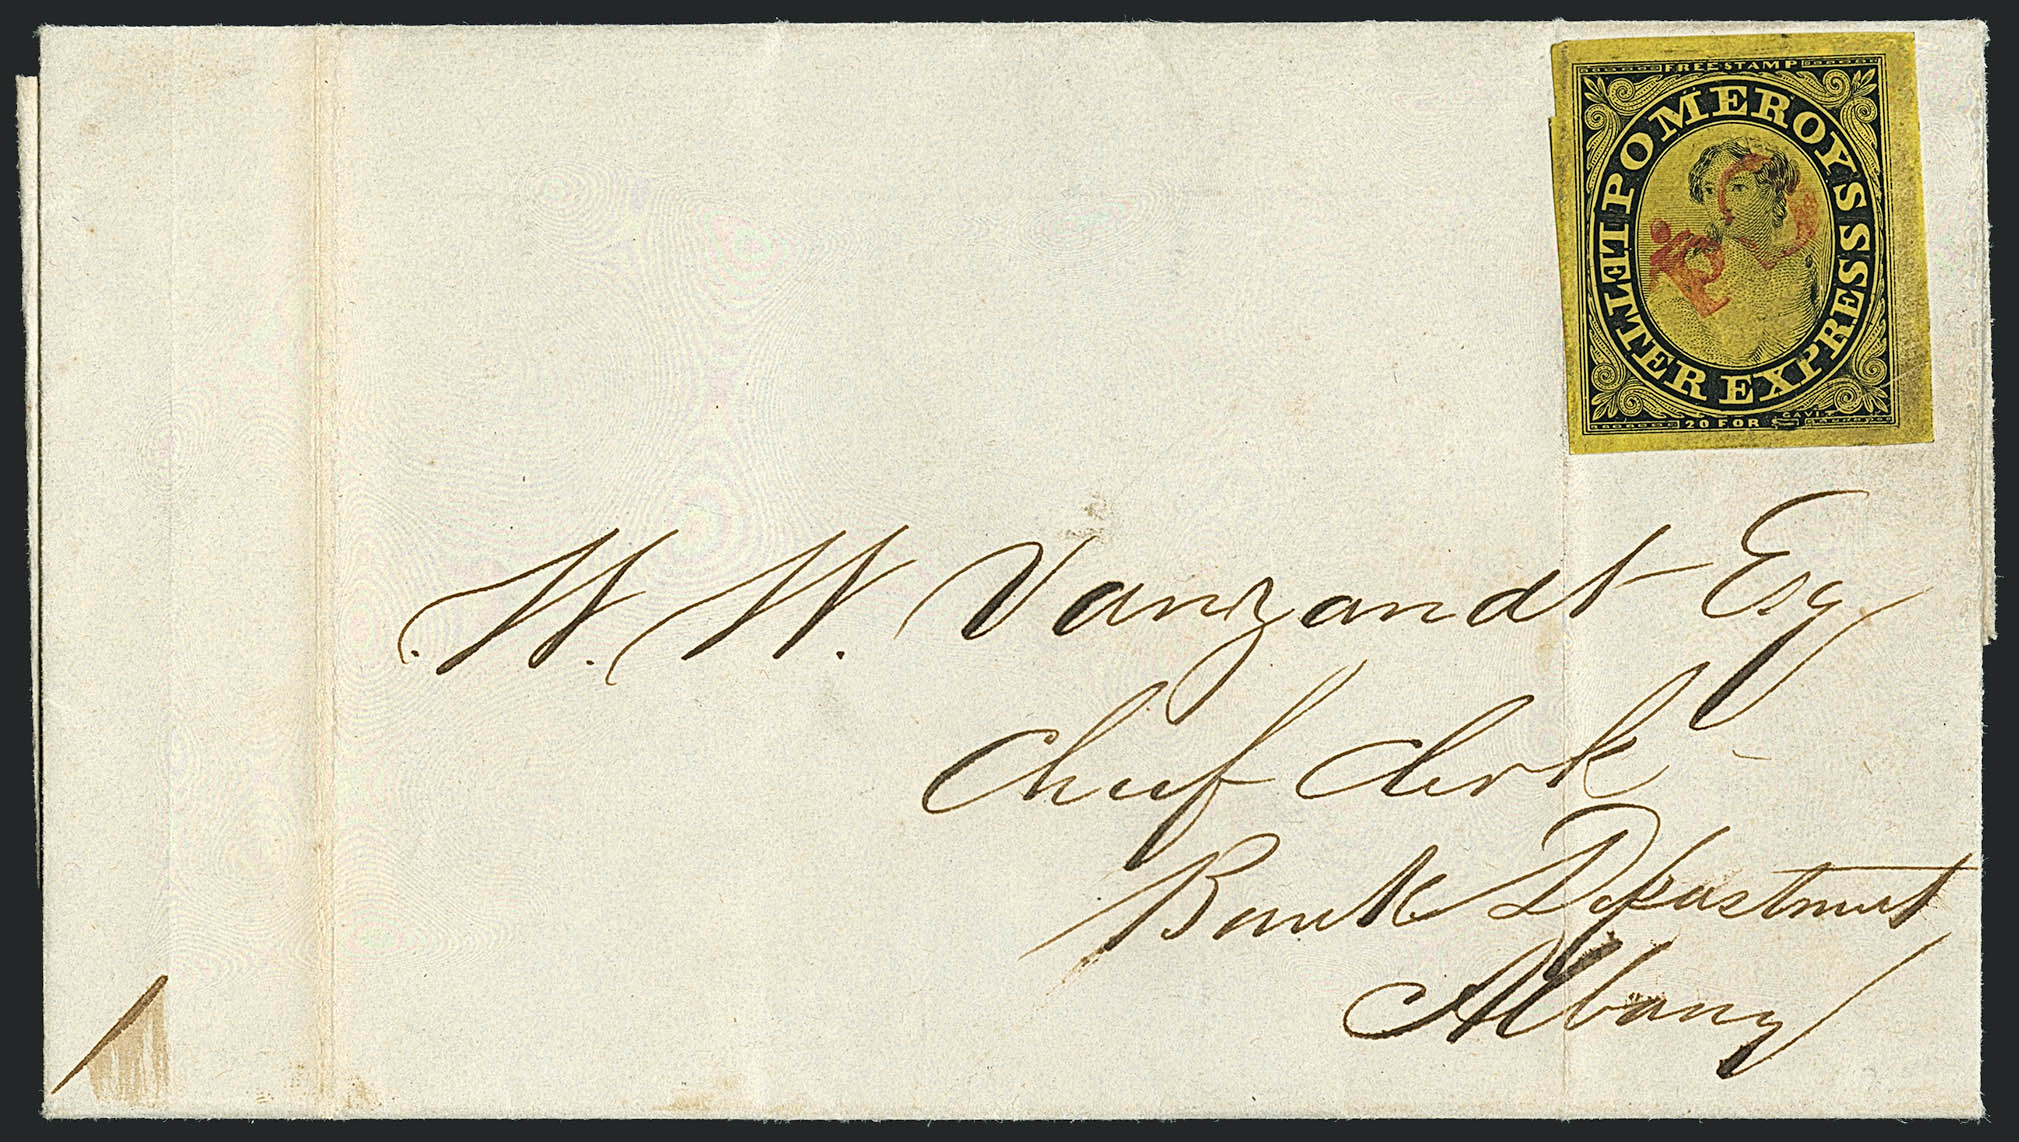 FREE STAMP
POMEROY'S
LETTER EXPRESS
GAVIT
20 FOR $1
W. W. Vanzandt Esq
Chief Clerk
Bank Department
Albany